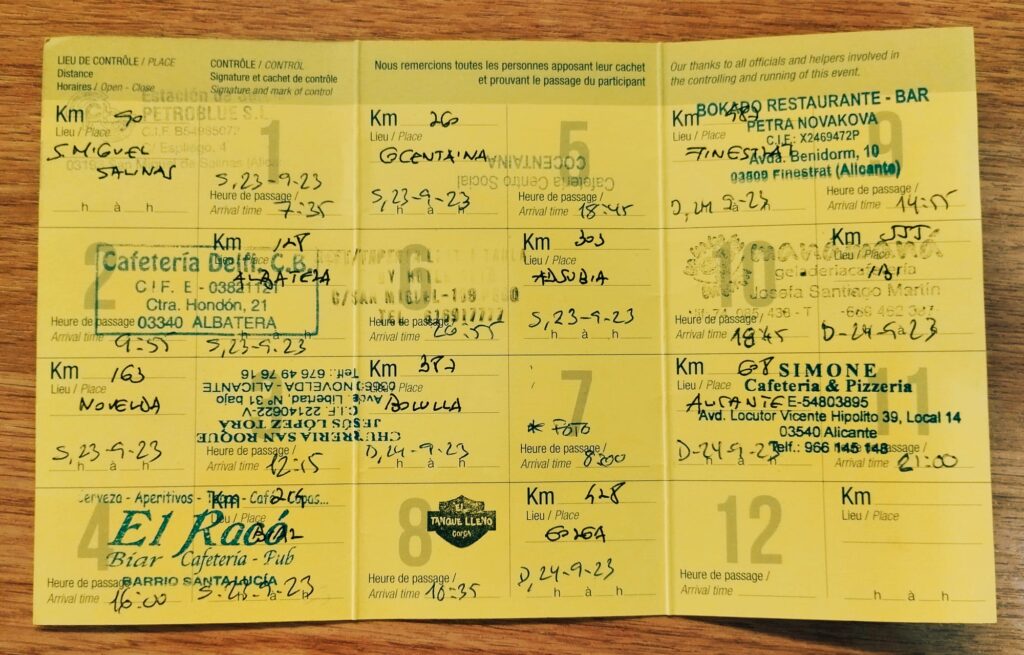 LIEU DE CONTRÔLE / PLACE
Distance
Horaires / Open - Close
CONTRÔLE / CONTROL
Signature et cachet de contrôle
Signature and mark of control
Km 90
Lieu / Place
S. MIGUEL
SALINAS
h à h
1
PETROBLUE S.L.
S, 23-9-23
Heure de passage /
Arrival time 7:35
2
Km 128
Cafetería Delfi C.B.
ALBATERA
C I F. E - 03821121
Ctra. Hondón, 21
03340 ALBATERA
Heure de passage
9:55
S, 23-9-23
h à h
Km 163
Lieu / Place
NOVELDA
S, 23-9-23
h à h
CHURRERIA SAN ROQUE
JESÚS LÓPEZ TORÁ
C.I.F. 22140622-V
Avda. Libertad, Nº 31 bajo
03660 NOVELDA - ALICANTE
Telf.: 676 49 76 16
Heure de passage /
Arrival time 12:15
4
Cerveza - Aperitivos - Tapas - Café - Copas...
Km 214
Lieu / Place
BIAR
El Racó
Biar Cafetería - Pub
BARRIO SANTA LUCÍA
Heure de passage /
Arrival time 16:00
S. 23-9-23
h à h
Nous remercions toutes les personnes apposant leur cachet
et prouvant le passage du participant
Km 260
Lieu / Place
COCENTAINA
S, 23-9-23
h à h
5
Cafeteria Centro Social
COCENTAINA
Heure de passage /
Arrival time 18:45
6
C/SAN MIGUEL-
TEL.
Heure de passage /
Arrival time
Km 303
Lieu / Place
ADSUBIA
S, 23-9-23
h à h
Km 387
Lieu / Place
BOLULLA
D, 24-9-23
h à h
7
* FOTO
Heure de passage /
Arrival time 8:00
8
EL
TANQUE LLENO
GORGA
Heure de passage /
Arrival time 10:35
Km 428
Lieu / Place
GORGA
D, 24-9-23
h à h
Our thanks to all officials and helpers involved in
the controlling and running of this event.
Km 487
Lieu / Place
FINESTRAT
D, 24-9-23
9
BOKADO RESTAURANTE - BAR
PETRA NOVAKOVA
C.I.E.: X2469472P
Avda. Benidorm, 10
03509 Finestrat (Alicante)
Heure de passage /
Arrival time 14:55
10
Km 555
Lieu / Place
IBI
heladeriacafetería
Josefa Santiago Martín
Heure de passage /
Arrival time 18:45
D-24-9-23
h à h
Km
Lieu / Place
D-24-9-23
h à h
11
SIMONE
Cafeteria & Pizzeria
E-54803895
Avd. Locutor Vicente Hipolito 39, Local 14
03540 Alicante
Telf.: 966 145 148
Arrival time 21:00
12
Heure de passage /
Arrival time
Km
Lieu / Place
h à h